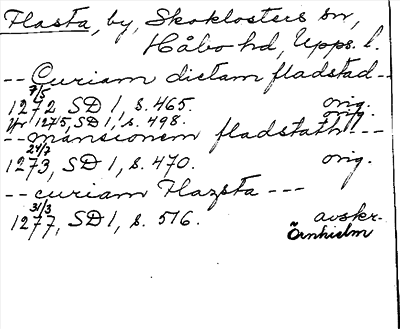 Flasta, by, Skoklosters sn,
Håbo hd, Upps. l.
-- Curiam dictam fladstad --
7/5
1272 SD 1, s. 465. orig.
Yr 1275, SD 1, s. 498. orig.
-- mansionem fladstath --
24/7
1273, SD 1, s. 470. orig.
-- curiam Flazsta ---
31/3
1277, SD 1, s. 516. avskr.
Örnhielm